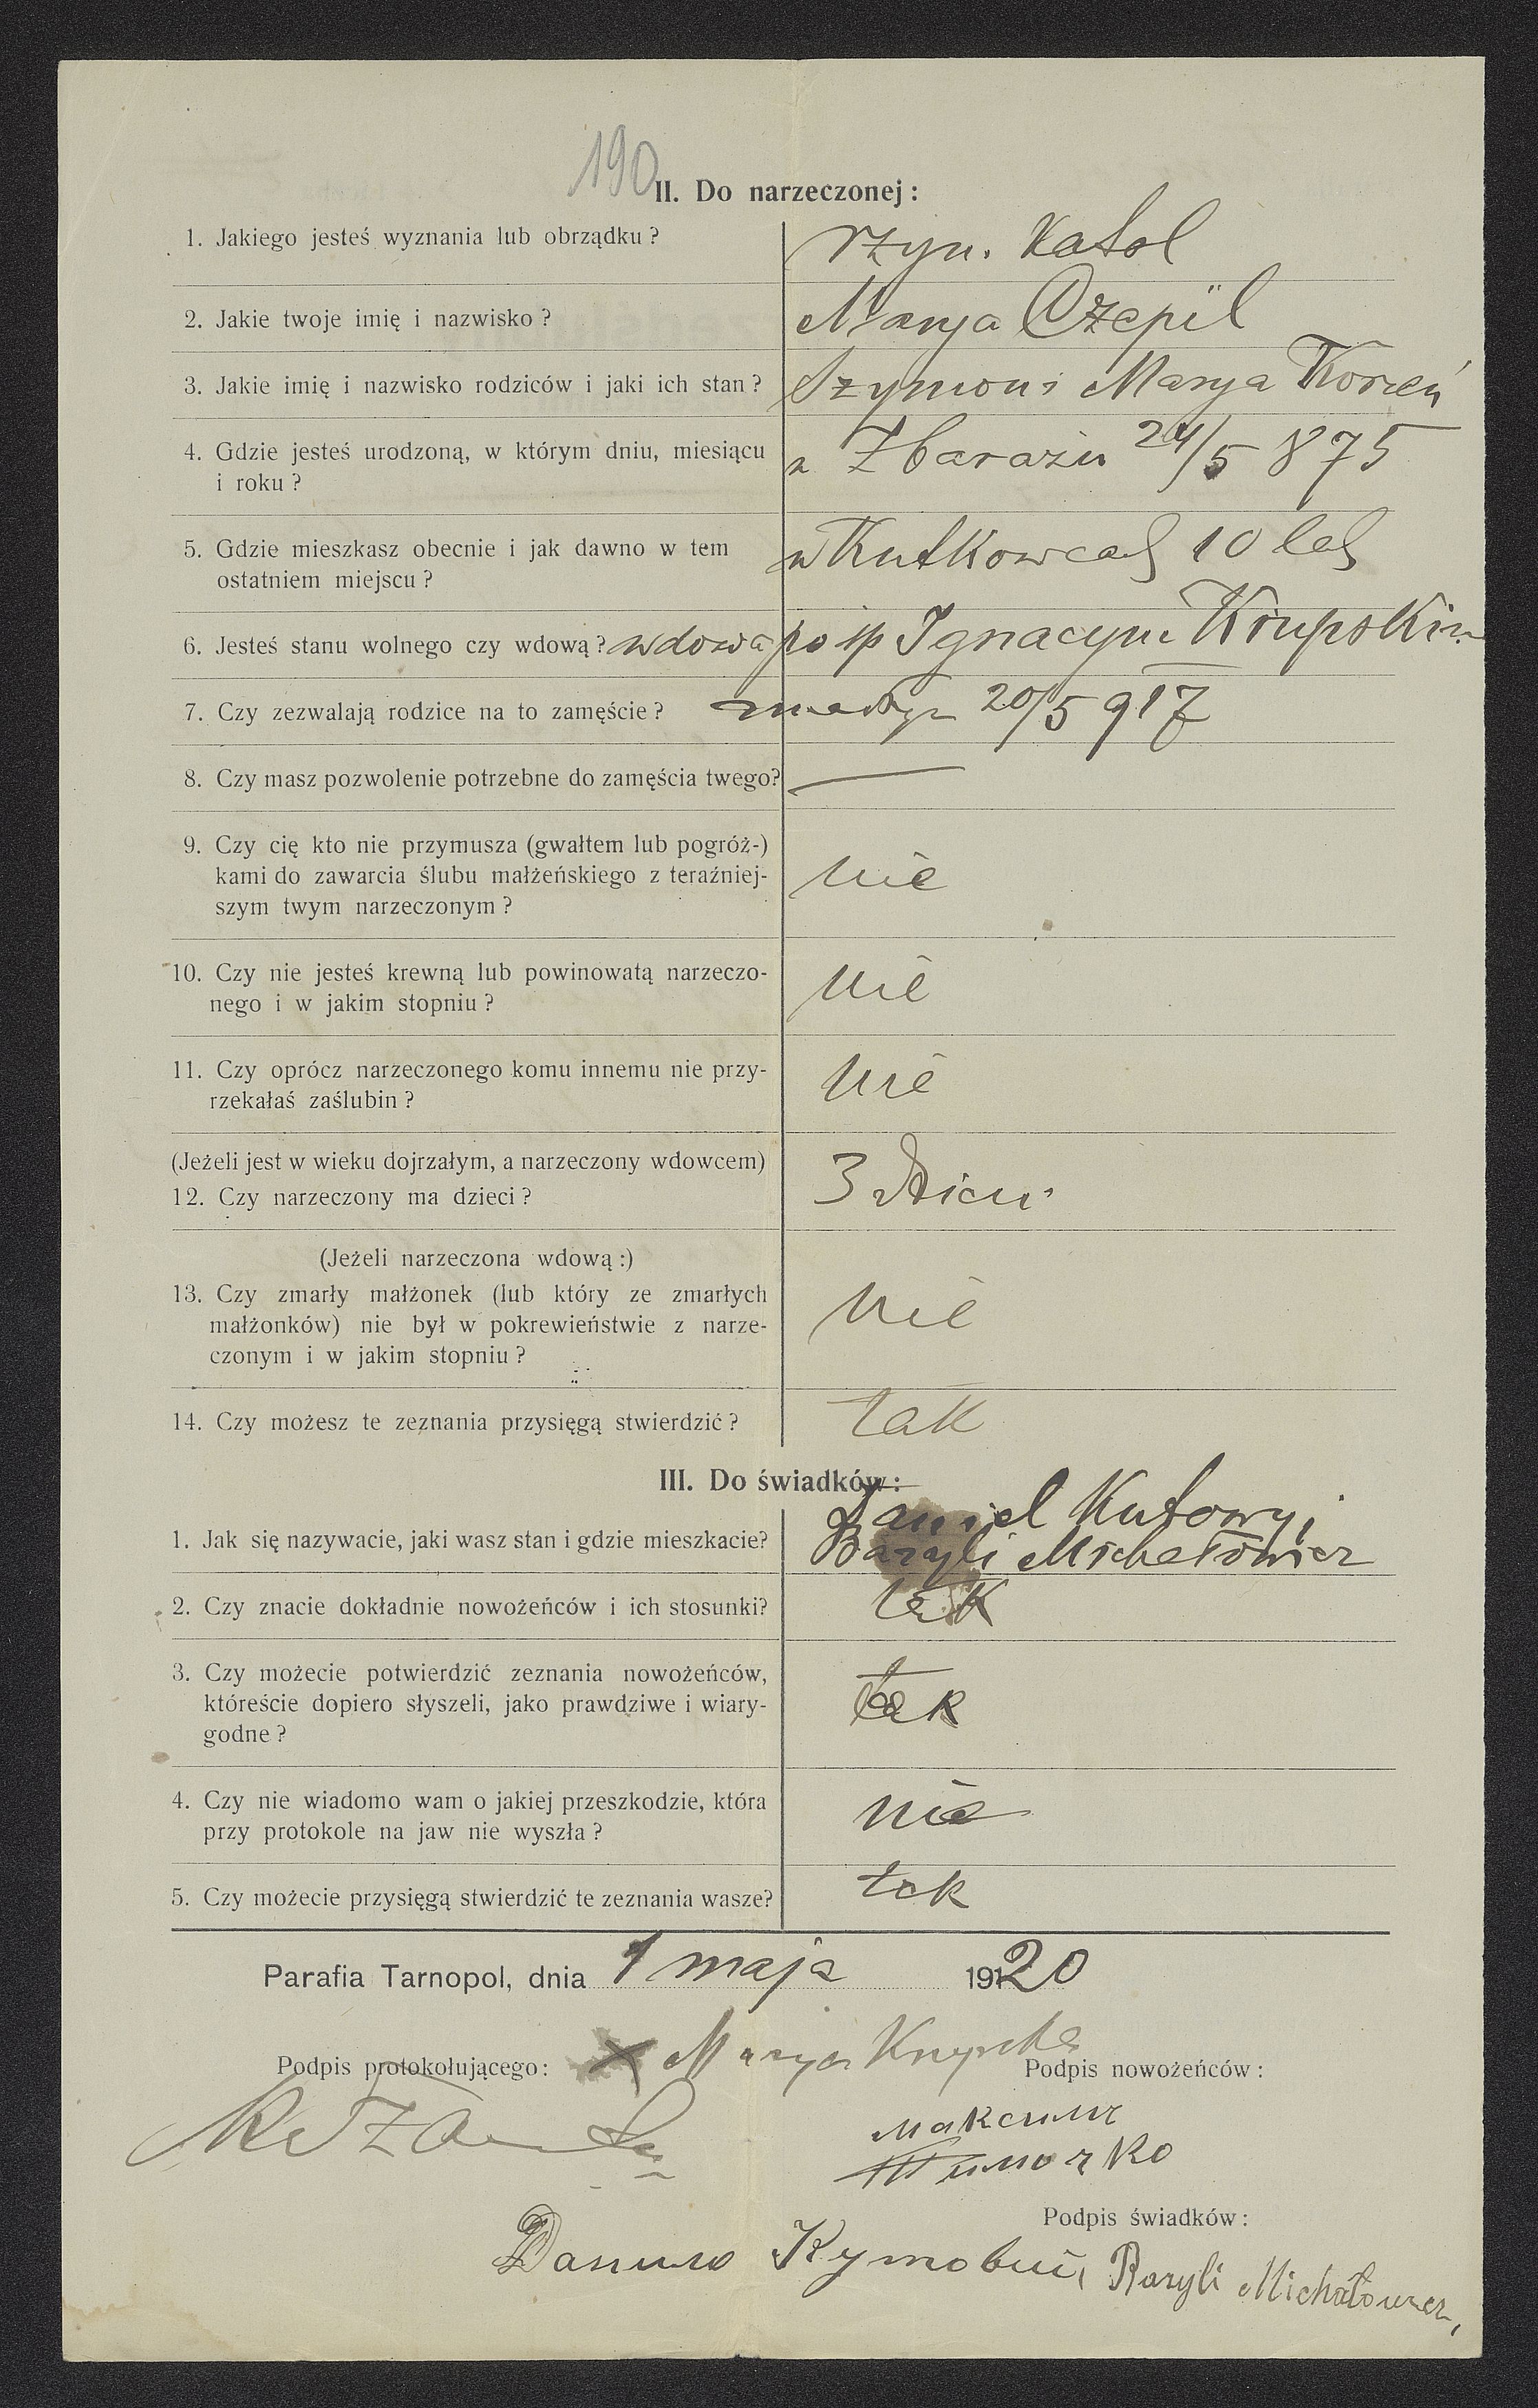 190
II. Do narzeczonej:
1. Jakiego jesteś wyznania lub obrządku?
rzym. Katol
2. Jakie twoje imię i nazwisko?
Marya Czepil
3. Jakie imię i nazwisko rodziców i jaki ich stan?
Szymon i Marya Korzeń
4. Gdzie jesteś urodzoną, w którym dniu, miesiącu
i roku?
w Zbarażu 24/5 875
5. Gdzie mieszkasz obecnie i jak dawno w tem
ostatniem miejscu?
w Kutkowcach 10 lat
6. Jesteś stanu wolnego czy wdową?
wdowa po śp Ignacym Krupskim
7. Czy zezwalają rodzice na to zamęście?
zmarłym 20/5 917
8. Czy masz pozwolenie potrzebne do zamęścia twego?
—
9. Czy cię kto nie przymusza (gwałtem lub pogróż-)
kami do zawarcia ślubu małżeńskiego z teraźniej-
szym twym narzeczonym?
nie
10. Czy nie jesteś krewną lub powinowatą narzeczo-
nego i w jakim stopniu?
nie
11. Czy oprócz narzeczonego komu innemu nie przy-
rzekałaś zaślubin?
nie
(Jeżeli jest w wieku dojrzałym, a narzeczony wdowcem)
12. Czy narzeczony ma dzieci?
3 dzieci
(Jeżeli narzeczona wdową:)
13. Czy zmarły małżonek (lub który ze zmarłych
małżonków) nie był w pokrewieństwie z narze-
czonym i w jakim stopniu?
nie
14. Czy możesz te zeznania przysięgą stwierdzić?
tak
III. Do świadków:
1. Jak się nazywacie, jaki wasz stan i gdzie mieszkacie?
Daniel Kutowyj
Bazyli Michałowicz
2. Czy znacie dokładnie nowożeńców i ich stosunki?
tak
3. Czy możecie potwierdzić zeznania nowożeńców,
któreście dopiero słyszeli, jako prawdziwe i wiary-
godne?
tak
4. Czy nie wiadomo wam o jakiej przeszkodzie, która
przy protokole na jaw nie wyszła?
nie
5. Czy możecie przysięgą stwierdzić te zeznania wasze?
tak
Parafia Tarnopol, dnia 1 maja 19120
x Marya Krupska
Podpis protokołującego:
Podpis nowożeńców:
Максим
Podpis świadków:
Данило Bazyli Michałowicz,